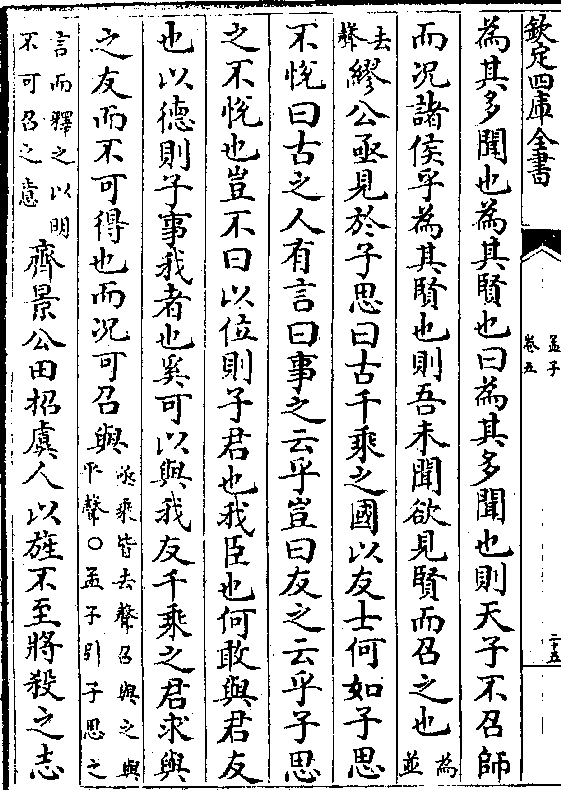 欽定四庫全書
孟子
卷五
二十五
為其多聞也為其賢也曰為其多聞也則天子不召師
而况諸侯乎為其賢也則吾未聞欲見賢而召之也為並
去聲繆公亟見於子思曰古千乘之國以友士何如子思
不悅曰古之人有言曰事之云乎豈曰友之云乎子思
之不悅也豈不曰以位則子君也我臣也何敢與君友
也以德則子事我者也奚可以與我友千乘之君求與
之友而不可得也而况可召與亟乘皆去聲召與之與平聲○孟子引子思之
言而釋之以明不可召之意齊景公田招虞人以旌不至將殺之志